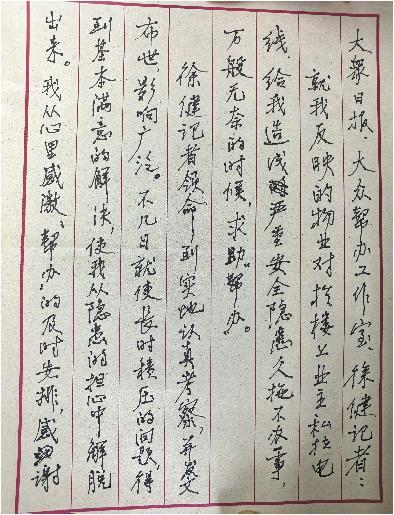 大众日报、大众帮办工作室、徐健记者：
就我反映的物业对于楼上业主私拉电
线，给我造成严重安全隐患久拖不办事，
万般无奈的时候，求助“帮办”。
徐健记者领命到实地认真考察，并发文
布世，影响广泛。不几日就使长时积压的问题，得
到基本满意的解决，使我从隐患的担心中解脱
出来。我从心里感激：“帮办”的及时安排，感谢